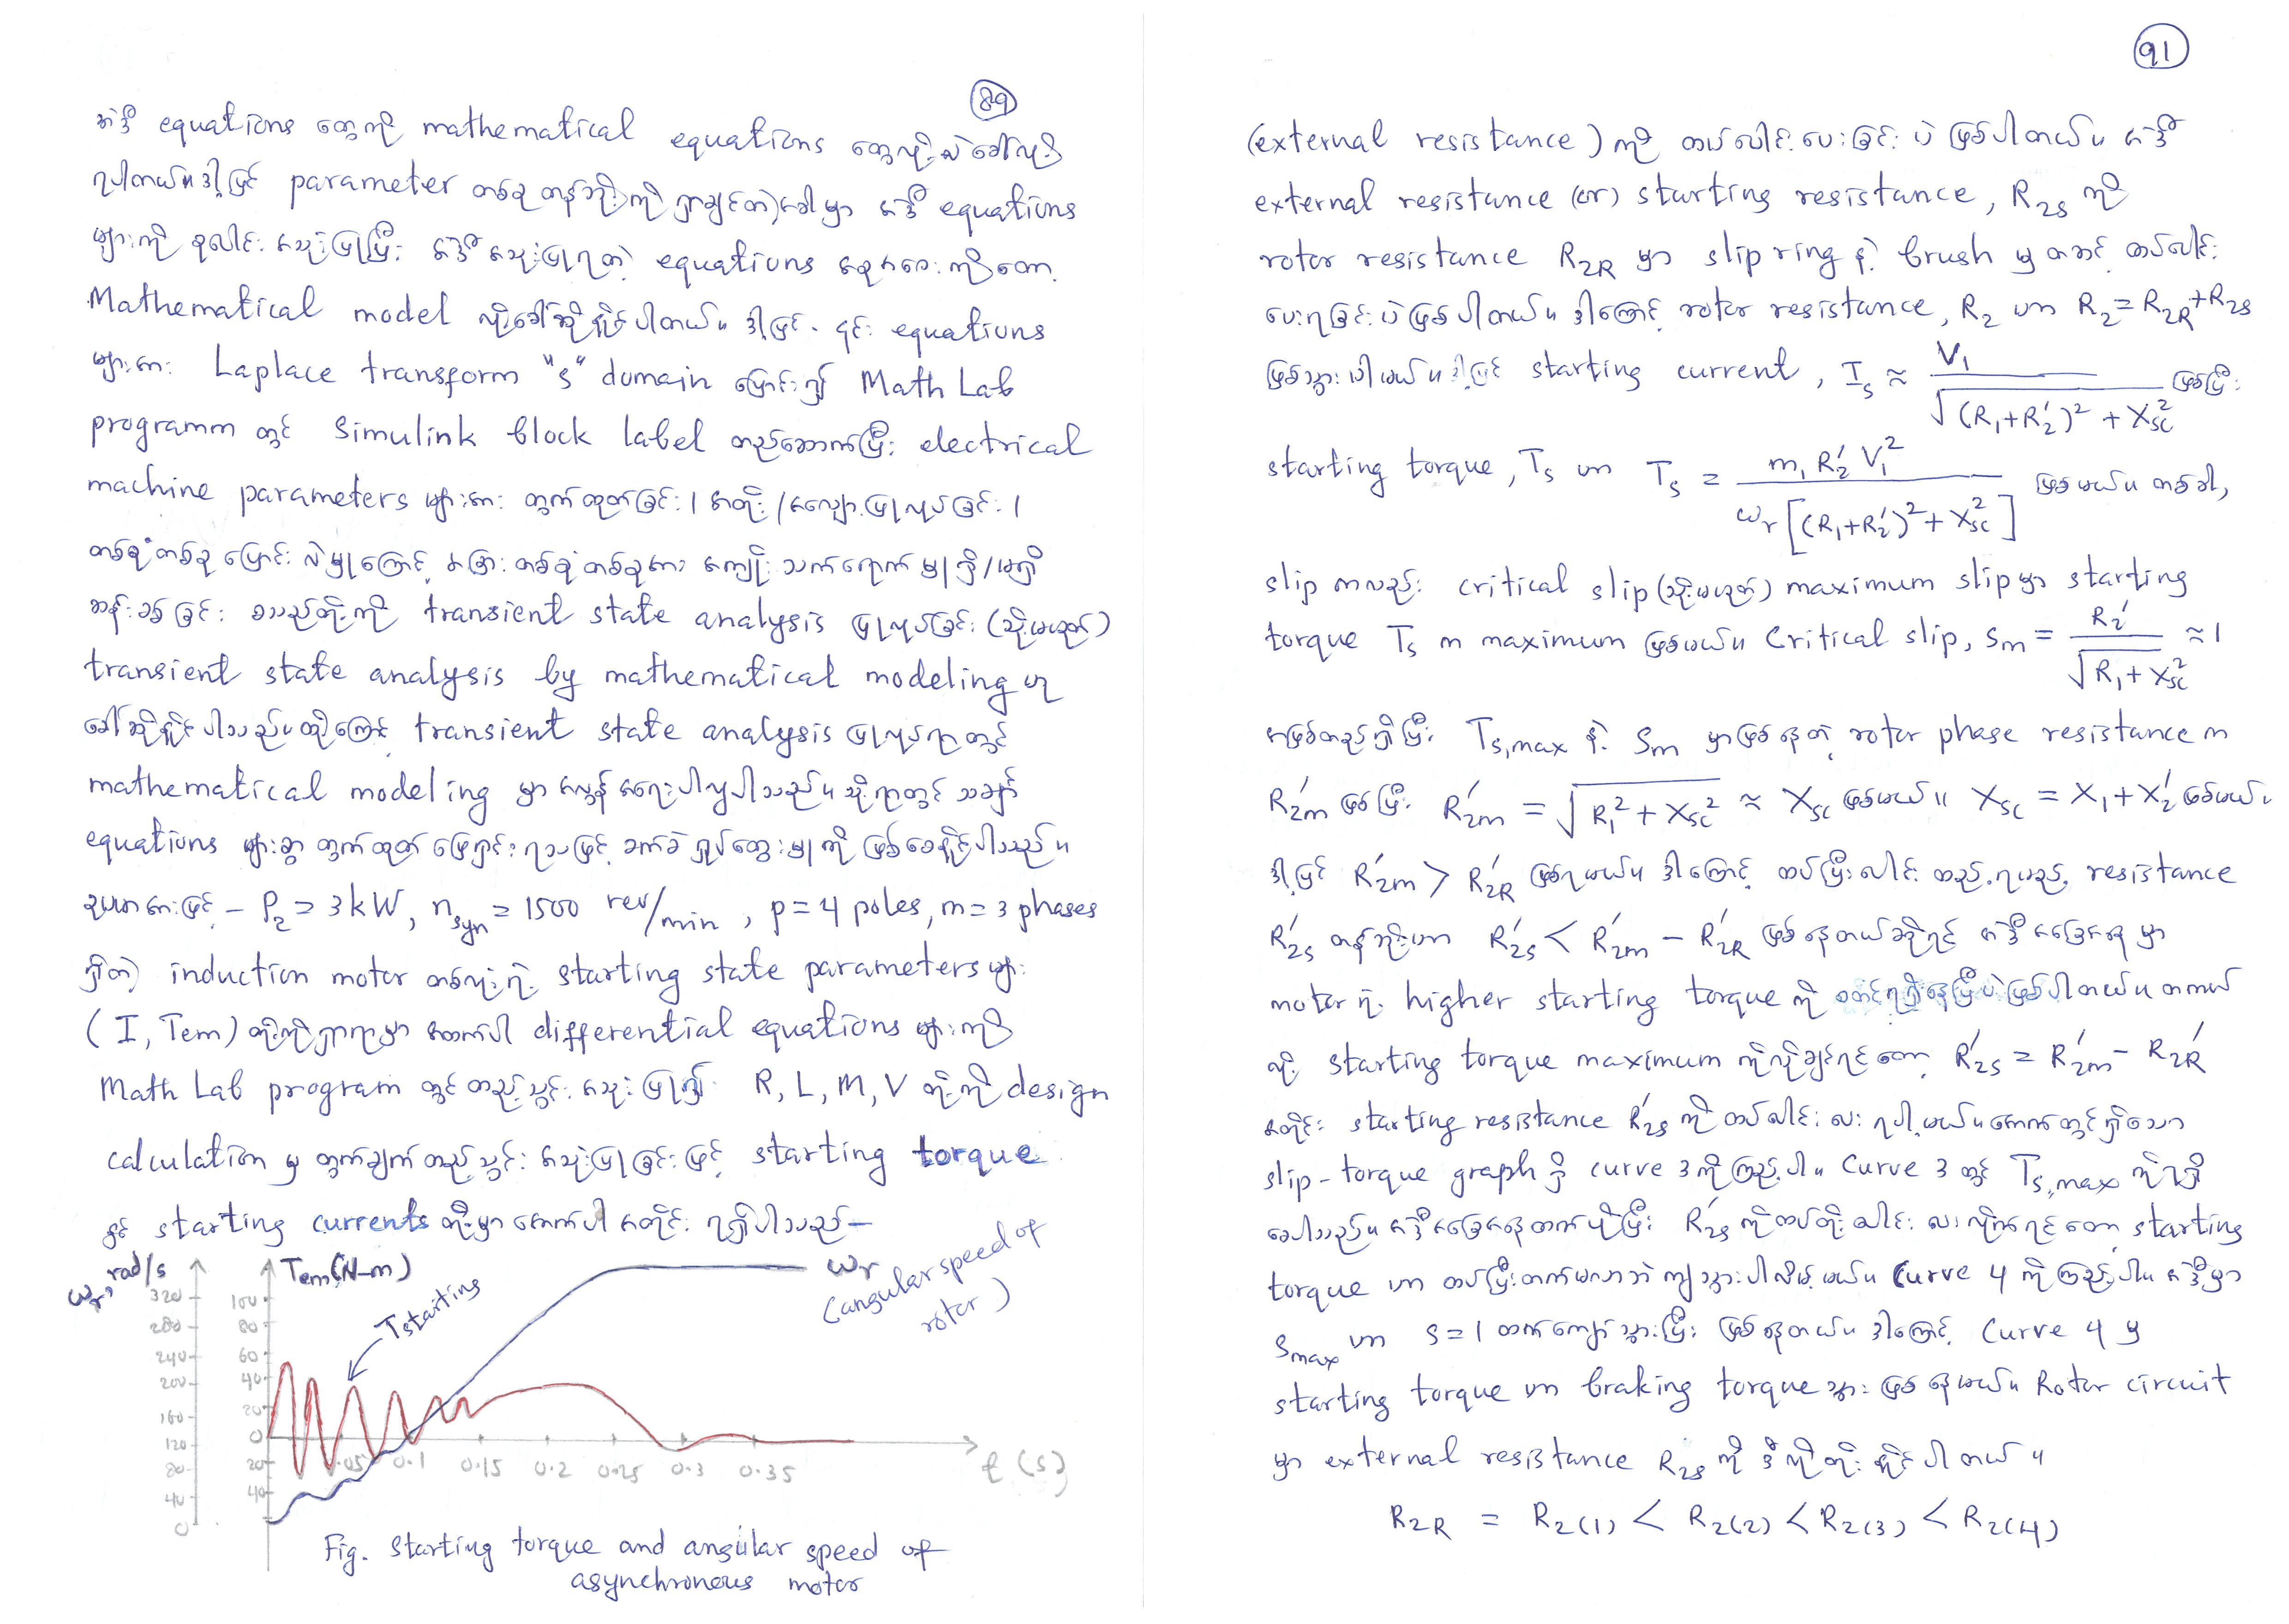 89
အဲဒီ equations တွေကို mathematical equations တွေလို့လဲခေါ်လို့
ရပါတယ်။ ဒါ့ဖြင့် parameter တစ်ခု တန်ဘိုးကို ရှာချင်တဲ့အခါမှာ အဲဒီ equations
များကို စုပေါင်း အသုံးပြုပြီး အဲဒီ အသုံးပြုရတဲ့ equations အစုအဝေးကိုတော့
Mathematical model လို့ခေါ်ဆိုနိုင်ပါတယ်။ ဒါ့ဖြင့် ၎င်း equations
များအား Laplace transform "s" domain ပြောင်း၍ Math Lab
programm တွင် Simulink block label တည်ဆောက်ပြီး electrical
machine parameters များအား တွက်ထုတ်ခြင်း၊ အတိုး/အလျော့ ပြုလုပ်ခြင်း၊
တစ်ခုံတစ်ခု ပြောင်းလဲမှုကြောင့် အခြားတစ်ခုံတစ်ခုအား အကျိုးသက်ရောက်မှု ရှိ/မရှိ
ဆန်းစစ်ခြင်း စသည်တို့ကို transient state analysis ပြုလုပ်ခြင်း (သို့မဟုတ်)
transient state analysis by mathematical modeling ဟု
ခေါ်ဆိုနိုင်ပါသည်။ ထို့ကြောင့် transient state analysis ပြုလုပ်ရာတွင်
mathematical modeling မှာ အလွန်အရေးပါလှပါသည်။ သို့ရာတွင် သင်္ချာ
equations များစွာ တွက်ထုတ်ဖြေရှင်းရသဖြင့် ခက်ခဲရှုပ်ထွေးမှုကို ဖြစ်စေနိုင်ပါသည်။
ဥပမာအားဖြင့် – P₂ = 3 kW, n_syn = 1500 rev/min, p = 4 poles, m = 3 phases
ရှိတဲ့ induction motor တစ်လုံးရဲ့ starting state parameters များ
(I, Tem) တို့ကိုရှာရာမှာ အထက်ပါ differential equations များကို
Math Lab program တွင်ထည့်သွင်း အသုံးပြု၍ R, L, M, V တို့ကို design
calculation မှ တွက်ချက်ထည့်သွင်း အသုံးပြုခြင်းဖြင့် starting torque
နှင့် starting currents တို့မှာ အောက်ပါအတိုင်း ရရှိပါသည်–
ωr, rad/s Tem (N-m)
320 280 240 200 160 120 80 40 0
100 80 60 40 20 0 20 40
Tstarting
ωr
(angular speed of
rotor)
0.05 0.1 0.15 0.2 0.25 0.3 0.35 t (s)
Fig. Starting torque and angular speed of
asynchronous motor
91
(external resistance) ကို ထပ်ပေါင်းပေးခြင်းပဲ ဖြစ်ပါတယ်။ အဲဒီ
external resistance (or) starting resistance, R₂s ကို
rotor resistance R₂R မှာ slip ring နဲ့ brush မှ တဆင့် ထပ်ပေါင်း
ပေးရခြင်းပဲဖြစ်ပါတယ်။ ဒါကြောင့် rotor resistance, R₂ ဟာ R₂ = R₂R + R₂s
ဖြစ်သွားပါမယ်။ ဒါ့ဖြင့် starting current, Is ≈ V₁ / √((R₁+R₂′)² + Xsc²) ဖြစ်ပြီး
starting torque, Ts ဟာ Ts = m₁ R₂′ V₁² / ωr[(R₁+R₂′)² + Xsc²] ဖြစ်မယ်။ တစ်ခါ,
slip ကလည်း critical slip (သို့မဟုတ်) maximum slip မှာ starting
torque Ts က maximum ဖြစ်မယ်။ Critical slip, Sm = R₂′ / √(R₁ + Xsc²) ≈ 1
အဖြစ်တည်ရှိပြီး Ts,max နဲ့ Sm မှာဖြစ်နေတဲ့ rotor phase resistance က
R₂m′ ဖြစ်ပြီး R₂m′ = √(R₁² + Xsc²) ≈ Xsc ဖြစ်မယ်။ Xsc = X₁ + X₂′ ဖြစ်မယ်။
ဒါ့ဖြင့် R₂m′ > R₂R′ ဖြစ်ရမယ်။ ဒါကြောင့် ထပ်ပြီးပေါင်းထည့်ရမည့် resistance
R₂s′ တန်ဘိုးဟာ R₂s′ < R₂m′ – R₂R′ ဖြစ်နေတယ်ဆိုရင် အဲဒီအခြေအနေမှာ
motor ရဲ့ higher starting torque ကို စတင်ရရှိနေပြီပဲဖြစ်ပါတယ်။ တကယ်
လို့ starting torque maximum ကိုလိုချင်ရင်တော့ R₂s′ = R₂m′ – R₂R′
အတိုင်း starting resistance R₂s′ ကို ထပ်ပေါင်းပေးရပါ့မယ်။ အောက်တွင်ရှိသော
slip-torque graph ရှိ curve 3 ကိုကြည့်ပါ။ Curve 3 တွင် Ts,max ကိုရရှိ
စေပါသည်။ အဲဒီအခြေအနေထက်ပိုပြီး R₂s′ ကိုထပ်တိုးပေါင်းပေးလိုက်ရင်တော့ starting
torque ဟာ ထပ်ပြီးတက်မလာဘဲ ကျသွားပါလိမ့်မယ်။ Curve 4 ကိုကြည့်ပါ။ အဲဒီမှာ
Smax ဟာ S = 1 ထက်ကျော်သွားပြီး ဖြစ်နေတယ်။ ဒါကြောင့် Curve 4 မှ
starting torque ဟာ braking torque သွားဖြစ်နေမယ်။ Rotor circuit
မှာ external resistance R₂s ကို ဒီလိုတိုးနိုင်ပါတယ်။
R₂R = R₂(1) < R₂(2) < R₂(3) < R₂(4)